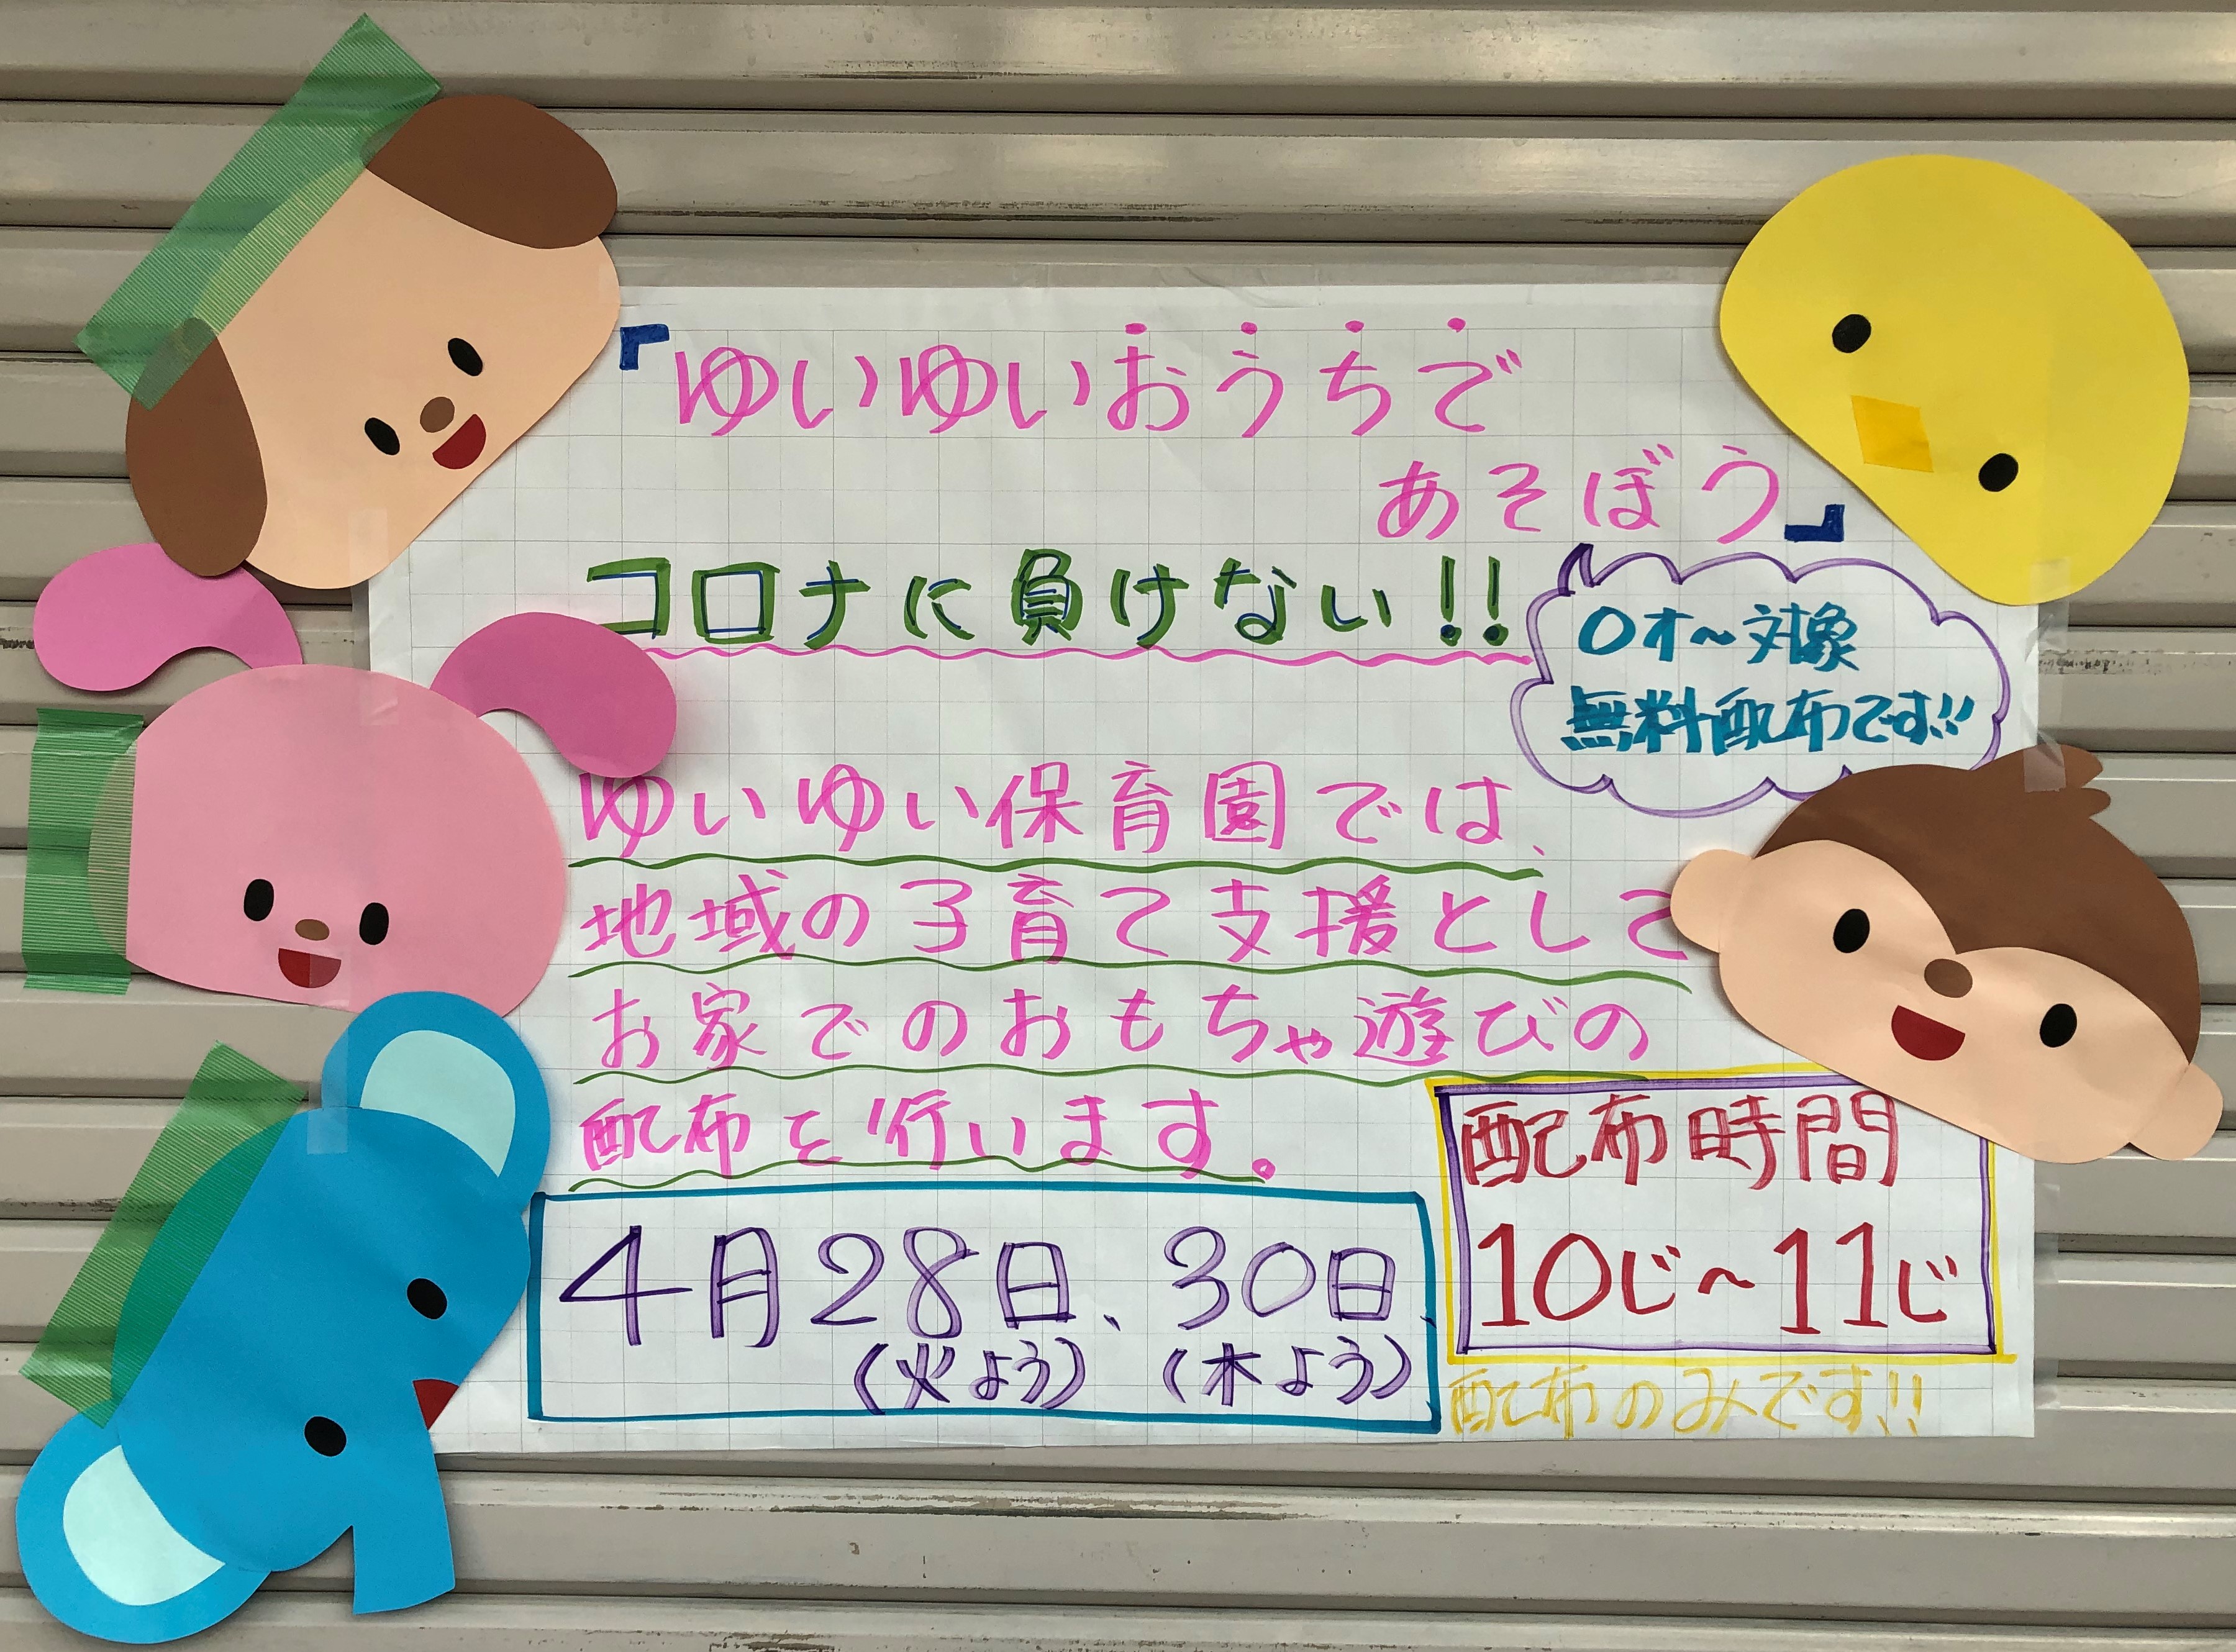 『ゆいゆいおうちで
あそぼう』
コロナに負けない!!
0才~対象
無料配布です!!
ゆいゆい保育園では、
地域の子育て支援として
お家でのおもちゃ遊びの
配布を行います。
4月28日、30日
(火よう) (木よう)
配布時間
10じ~11じ
配布のみです!!